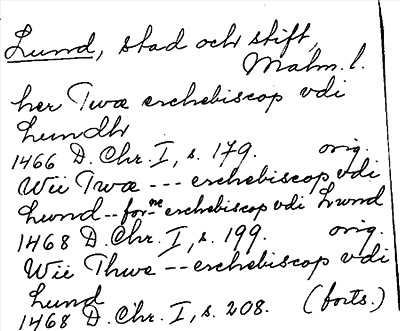 Lund, stad och stift,
Malm. l.
her Twæ erchebiscop vdi
Lundh
1466 D. Chr. I, s. 179. orig.
Wii Twæ --- erchebiscop vdi
Lund -- for-ne erchebiscop vdi Lund
1468 D. Chr. I, s. 199. orig.
Wii Thwe -- erchebiscop vdi
Lund
1468 D. Chr. I, s. 208. (forts.)